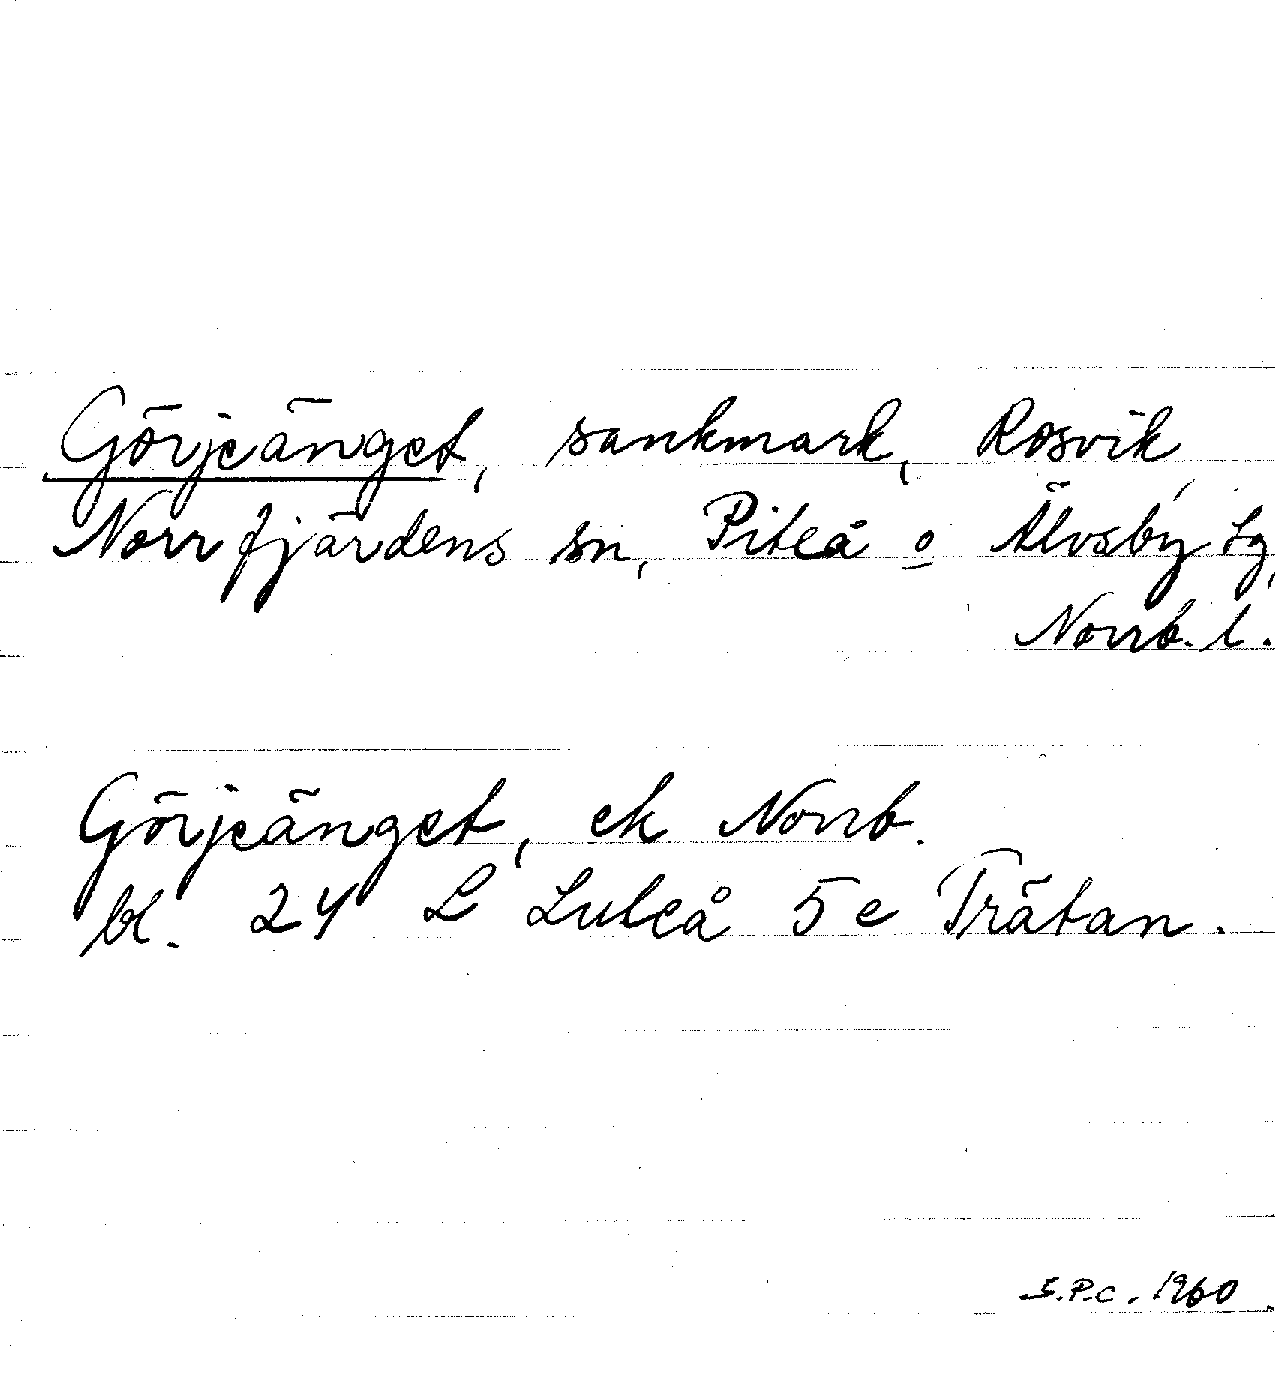 Görjeänget, sankmark, Rosvik
Norrfjärdens sn, Piteå o Älvsby tg,
Norrb. l.
Görjeänget, ek Norrb.
bl. 24 L Luleå 5 e Trätan.
S.P.C. 1960.